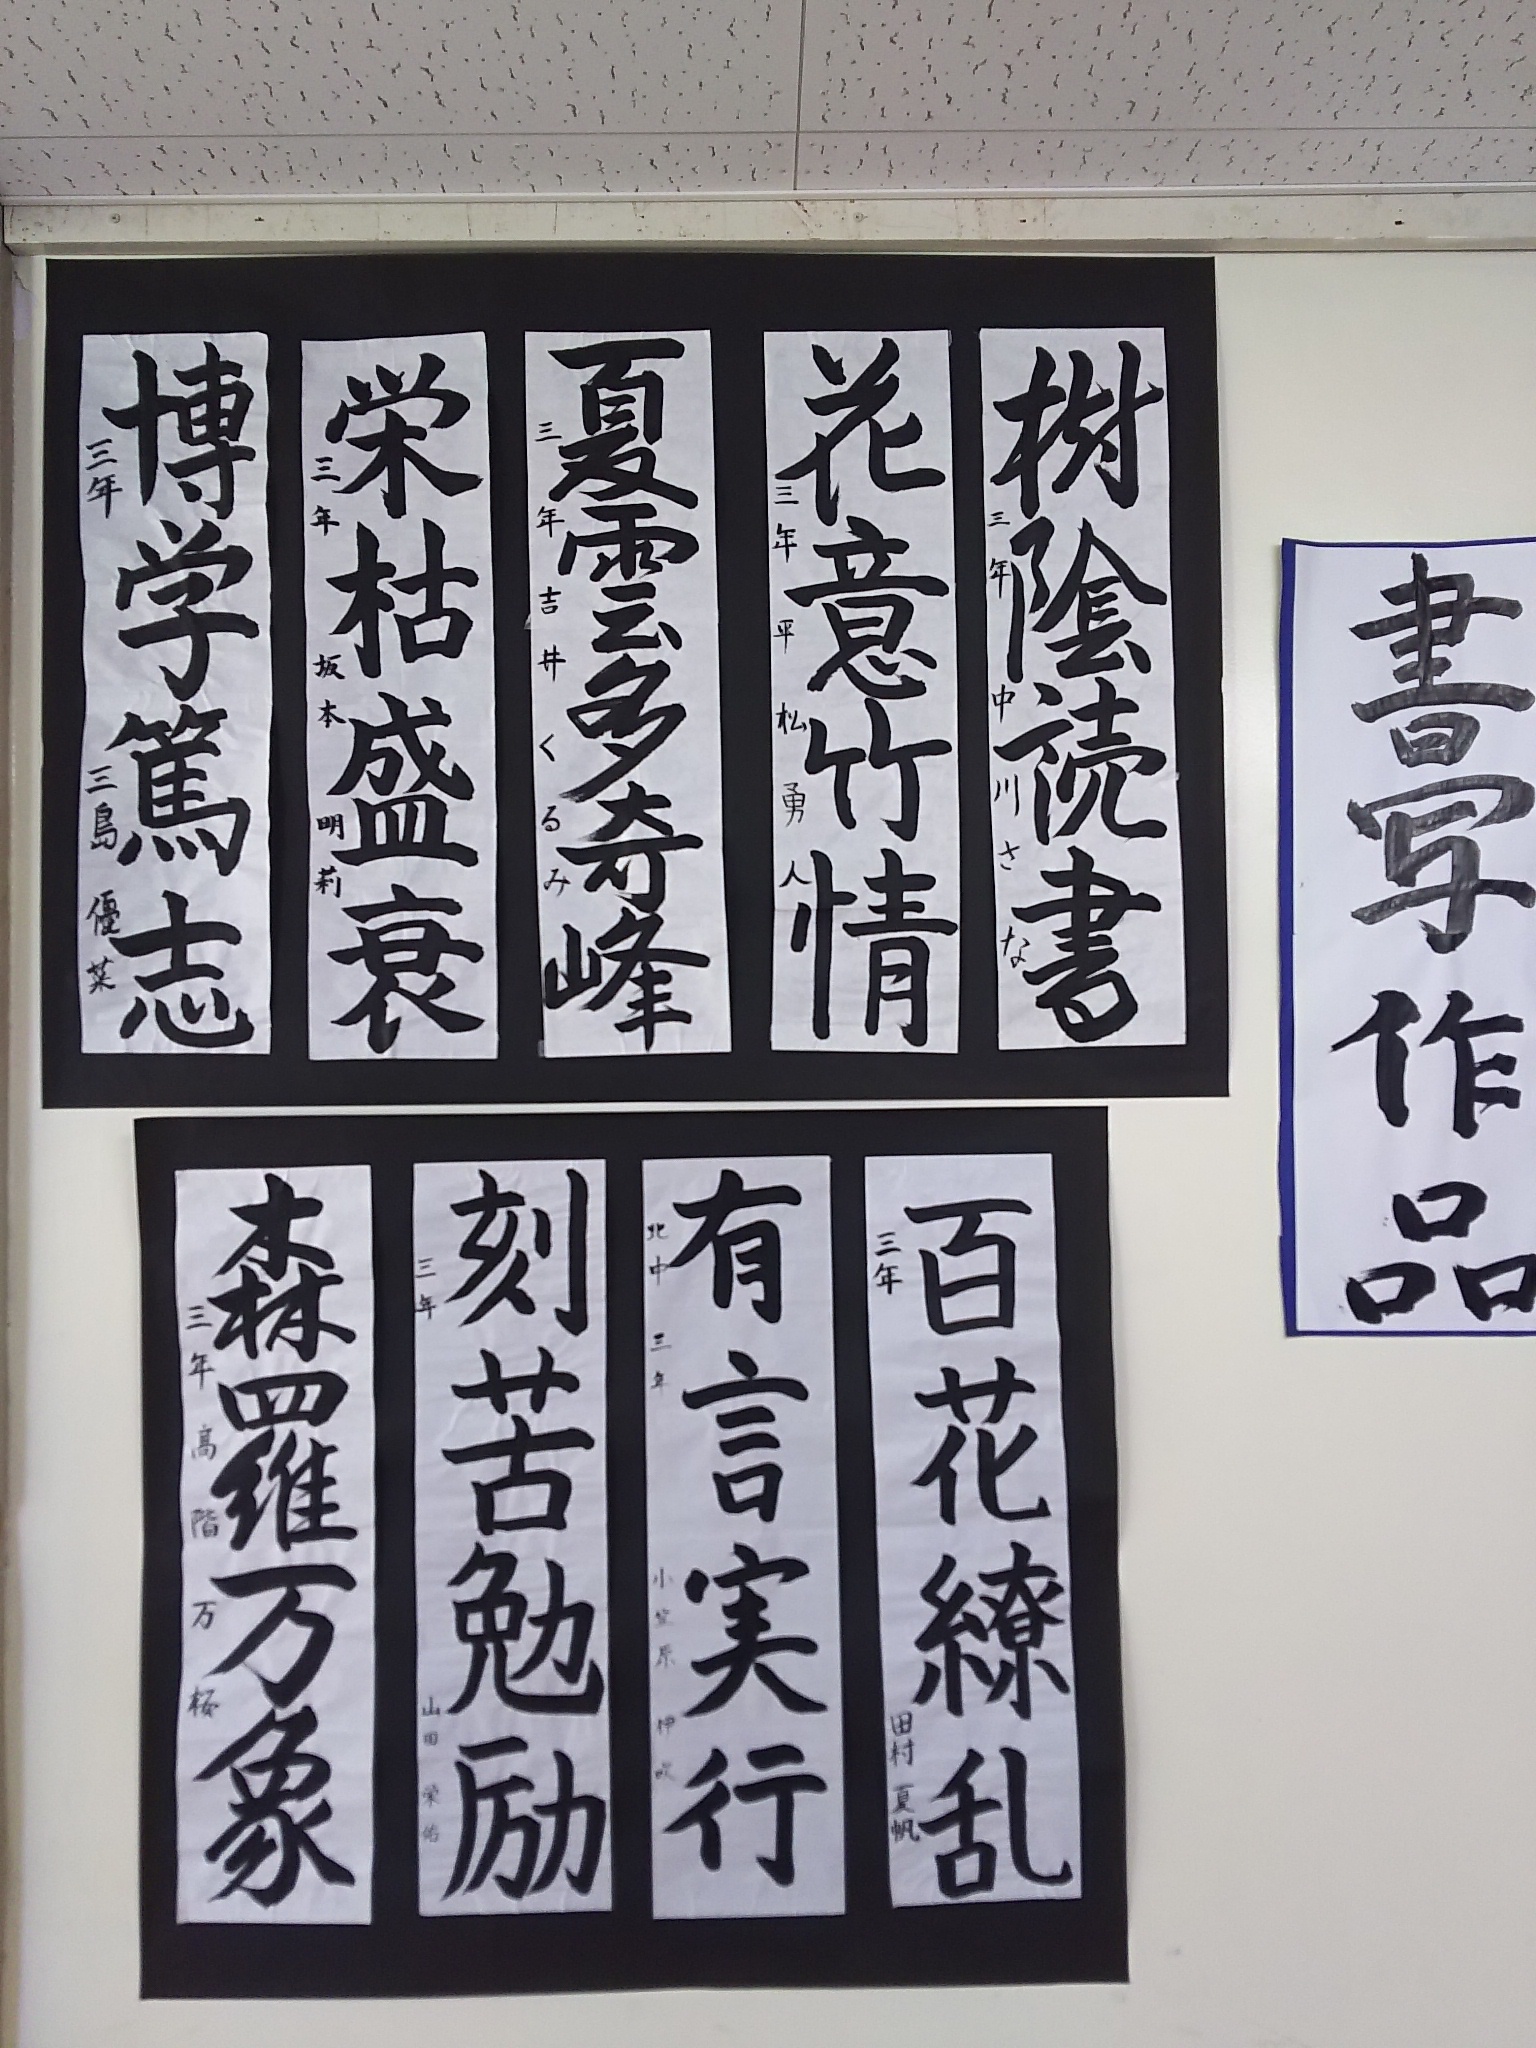 書写作品
樹陰読書
三年 中川さな
花意竹情
三年 平松勇人
夏雲多奇峰
三年 吉井くるみ
栄枯盛衰
三年 坂本明莉
博学篤志
三年 三島優菜
百花繚乱
三年 田村夏帆
有言実行
北中三年 小笠原伊吹
刻苦勉励
三年 山田栄佑
森羅万象
三年 高階万桜